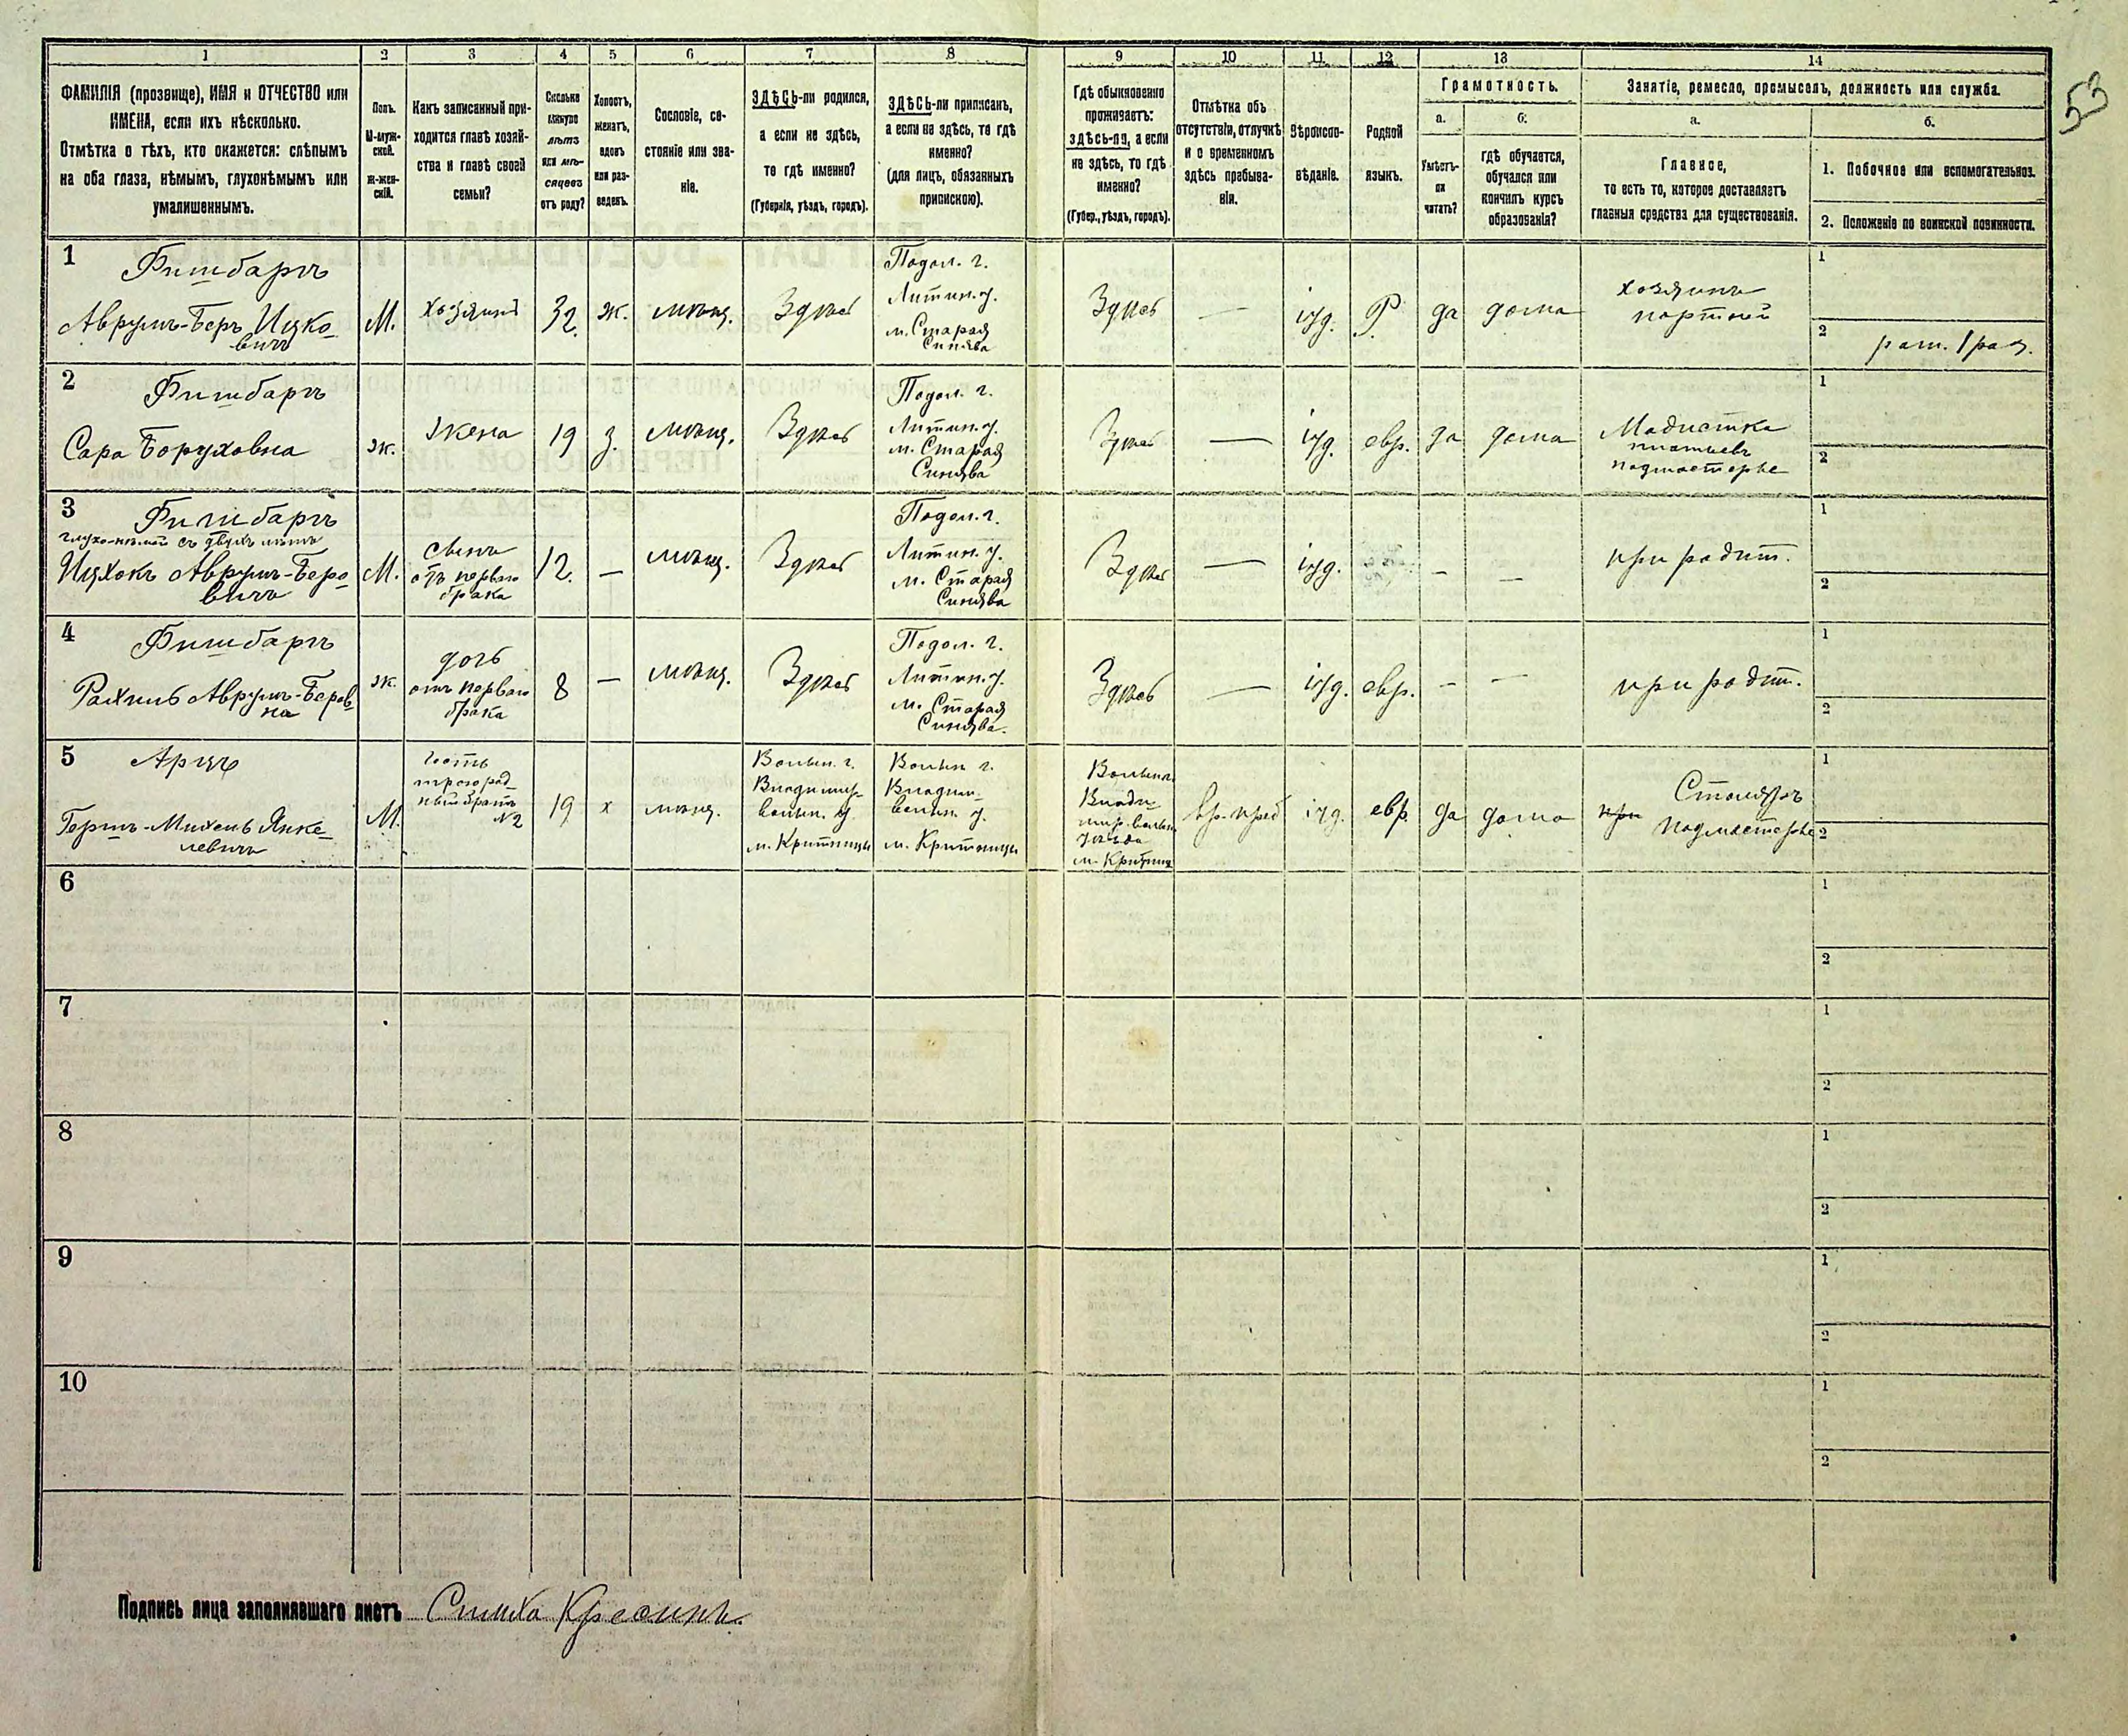 53
1 2 3 4 5 6 7 8 9 10 11 12 13 14
ФАМИЛІЯ (прозвище), ИМЯ и ОТЧЕСТВО или
ИМЕНА, если ихъ нѣсколько.
Отмѣтка о тѣхъ, кто окажется: слѣпымъ
на оба глаза, нѣмымъ, глухонѣмымъ или
умалишеннымъ.
Полъ.
М-муж-
ской.
Ж-жен-
скій.
Какъ записанный при-
ходится главѣ хозяй-
ства и главѣ своей
семьи?
Сколько
минуло
лѣтъ
или мѣ-
сяцевъ
отъ роду?
Холостъ,
женатъ,
вдовъ
или раз-
веденъ.
Сословіе, со-
стояніе или зва-
ніе.
ЗДѢСЬ-ли родился,
а если не здѣсь,
то гдѣ именно?
(Губернія, уѣздъ, городъ).
ЗДѢСЬ-ли приписанъ,
а если не здѣсь, то гдѣ
именно?
(для лицъ, обязанныхъ
припискою).
Гдѣ обыкновенно
проживаетъ:
здѣсь-ли, а если
не здѣсь, то гдѣ
именно?
(Губер., уѣздъ, городъ).
Отмѣтка объ
отсутствіи, отлучкѣ
и о временномъ
здѣсь пребыва-
ніи.
Вѣроиспо-
вѣданіе.
Родной
языкъ.
Грамотность.
а.
Умѣетъ-
ли
читать?
б.
гдѣ обучается,
обучался или
кончилъ курсъ
образованія?
Занятіе, ремесло, промыселъ, должность или служба.
а.
Главное,
то есть то, которое доставляетъ
главныя средства для существованія.
б.
1. Побочное или вспомогательное.
2. Положеніе по воинской повинности.
1
Фишбаргъ
Аврумъ-Беръ Ицко-
вичъ
М.
хозяинъ
32
ж.
мѣщ.
Здѣсь
Подол. г.
Литин. у.
м. Старая
Синява
Здѣсь
—
іуд.
Р.
да
дома
хозяинъ
портной
1
2
рат. 1 раз.
2
Фишбаргъ
Сара Боруховна
ж.
Жена
19
з.
мѣщ.
Здѣсь
Подол. г.
Литин. у.
м. Старая
Синява
Здѣсь
—
іуд.
евр.
да
дома
Модистка
платьевъ
подмастерье
1
2
3
Фишбаргъ
глухо-нѣмой съ двухъ лѣтъ
Ицхокъ Аврумъ-Беро-
вичъ
М.
сынъ
отъ перваго
брака
12.
—
мѣщ.
Здѣсь
Подол. г.
Литин. у.
м. Старая
Синява
Здѣсь
—
іуд.
—
—
при родит.
1
2
4
Фишбаргъ
Рахиль Аврумъ-Беров-
на
ж.
дочь
отъ перваго
брака
8
—
мѣщ.
Здѣсь
Подол. г.
Литин. у.
м. Старая
Синява.
Здѣсь
—
іуд.
евр.
—
—
при родит.
1
2
5
Арцъ
Гершъ-Михель Янке-
левичъ
М.
гость
троюрод-
ный братъ
№2
19
х
мѣщ.
Волын. г.
Владимир-
волын. у.
м. Критницы
Волын. г.
Владим.-
волын. у.
м. Критницы
Волын. г.
Влади-
мир-волын.
уѣзда
м. Критниц
вр. преб
іуд.
евр.
да
дома
Столяръ
при подмастерье
1
2
6
1
2
7
1
2
8
1
2
9
1
2
10
1
2
Подпись лица заполнявшаго листъ Симха Кресинъ